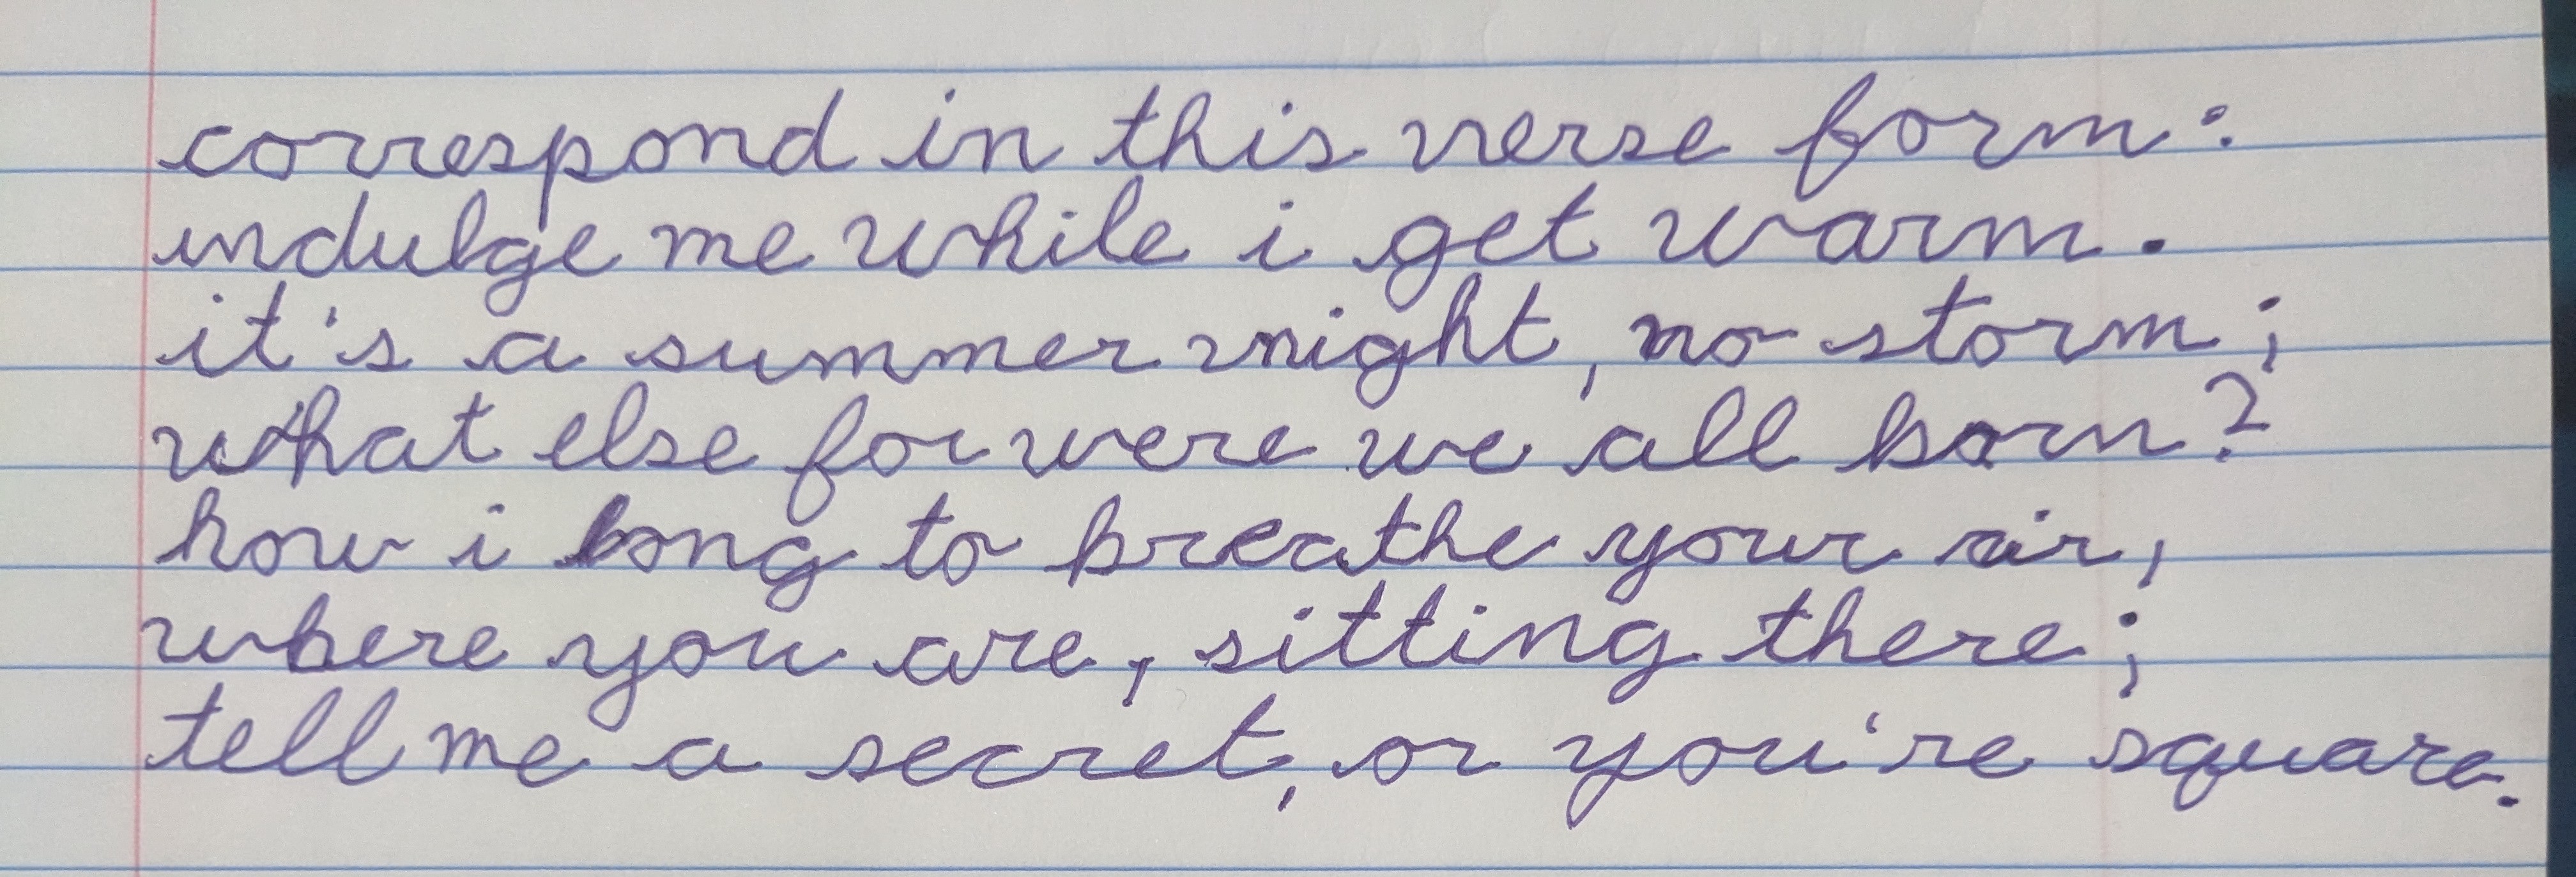 correspond in this verse form:
indulge me while i get warm.
it's a summer night, no storm;
what else for were we all born?
how i long to breathe your air,
where you are, sitting there;
tell me a secret, or you're square.